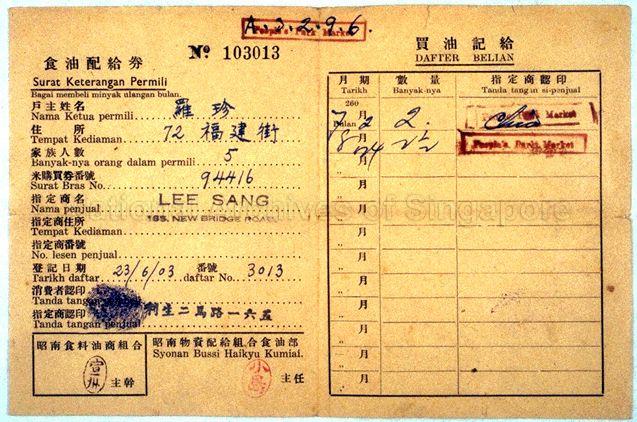 A. 3. 2. 9. 6.
People's Park Market
№ 103013
食油配給券
Surat Keterangan Permili
Bagai membeli minyak ulangan bulan.
戶主姓名 羅珍
Nama Ketua permili
住所 72 福建街
Tempat Kediaman
家族人數 5
Banyak-nya orang dalam permili
米購買券番號 94416
Surat Bras No.
指定商名 LEE SANG
Nama penjual
指定商住所 185, NEW BRIDGE ROAD
Tempat Kediaman
指定商番號
No. lesen penjual
登記日期 23/6/03 番號 3013
Tarikh daftar daftar No.
消費者認印
Tanda tangan
指定商認印 利生二馬路一六五
Tanda tangan penjual
昭南食料油商組合
主幹
昭南物資配給組合食油部
Syonan Bussi Haikyu Kumiai.
主任
買油記給
DAFTER BELIAN
月期 數量 指定商認印
Tarikh Banyak-nya. Tanda tangan si-penjual
260
7 月 2 2. People's Park Market
Bulan
8 月 24 2½ People's Park Market
月
„
月
„
月
„
月
„
月
„
月
„
月
„
月
„
月
„
月
National Archives of Singapore